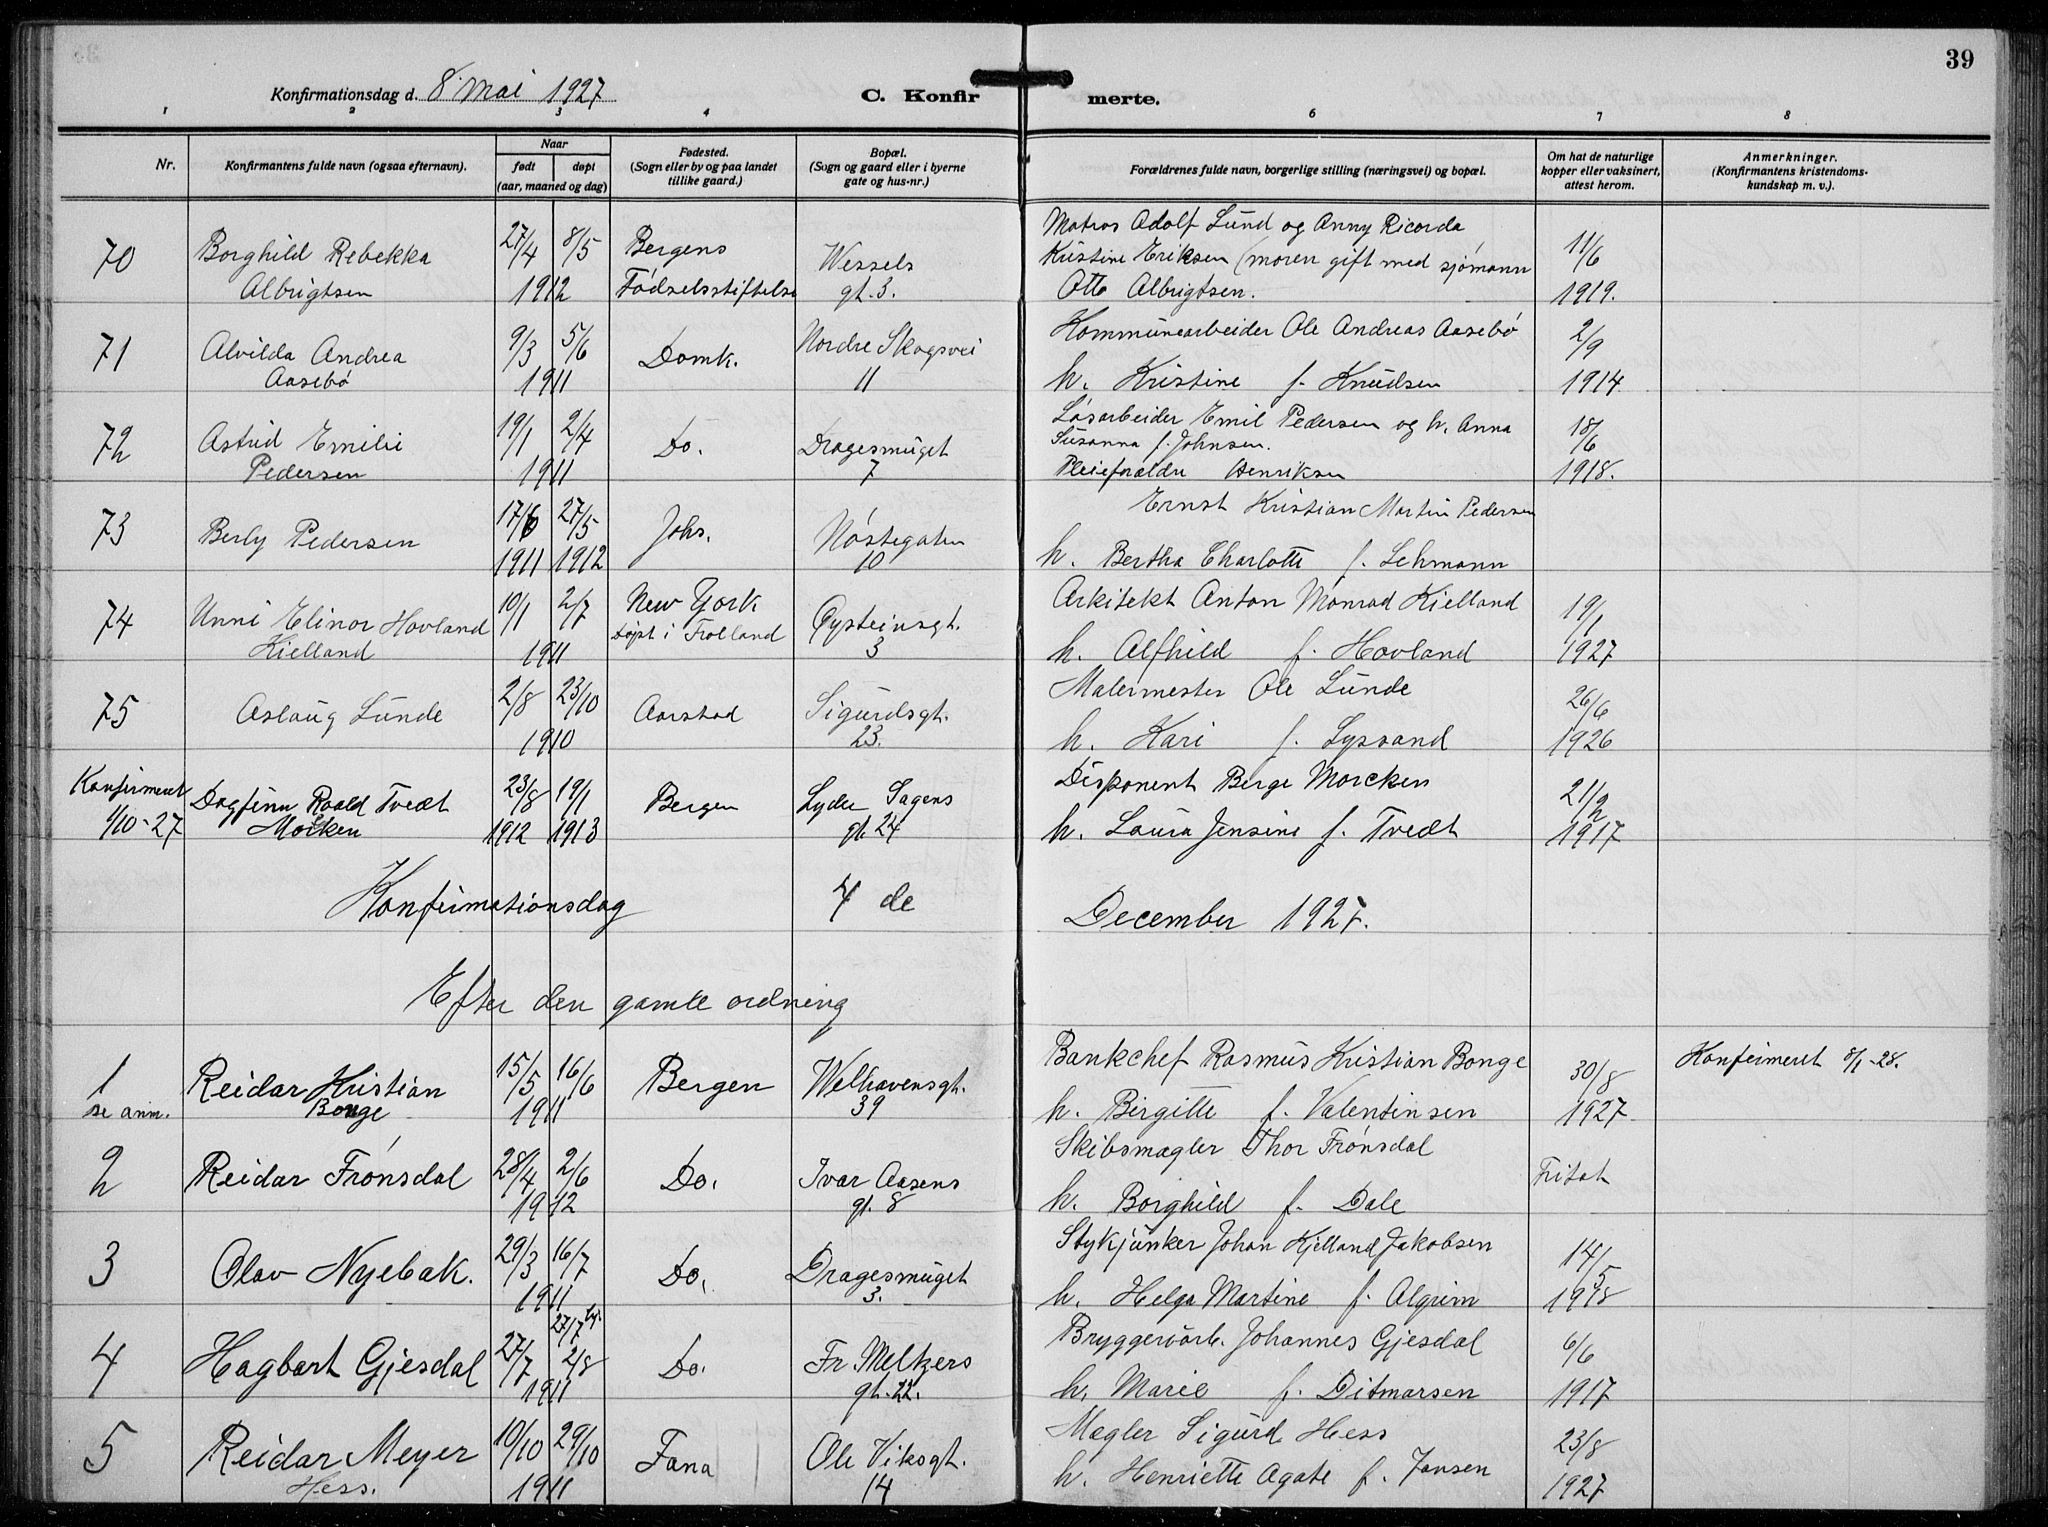 39
Konfirmationsdag d. 8 Mai 1927 C. Konfirmerte.
1 2 3 4 6 7 8
Nr. Konfirmantens fulde navn (ogsaa efternavn). Naar født døpt (aar, maaned og dag) Fødested. (Sogn eller by og paa landet tillike gaard.) Bopæl. (Sogn og gaard eller i byerne gate og hus-nr.) Forældrenes fulde navn, borgerlige stilling (næringsvei) og bopæl. Om hat de naturlige kopper eller vaksinert, attest herom. Anmerkninger. (Konfirmantens kristendomskundskap m. v.).
Matros Adolf Lund og Anny Ricorda
70 Borghild Rebekka 27/4 8/5 Bergens Wessels Kristine Eriksen (moren gift med sjømann 11/6
Albrigtsen 1912 Fødselsstiftelse gt. 3. Otto Albrigtsen. 1919.
71 Alvilda Andrea 9/3 5/6 Domk. Nordre Skogsvei Kommunearbeider Ole Andreas Aasebø 2/9
Aasebø 1911 11 h. Kristine f. Knudsen 1914.
72 Astrid Emilie 19/1 2/4 Do. Dragesmuget Løsarbeider Emil Pedersen og h. Anna 18/6
Susanna f. Johnsen.
Pedersen 1911 7 Pleieforældre Henriksen 1918.
73 Berly Pedersen 17/6 27/5 Johs. Nøstegaten Ernst Kristian Martin Pedersen
1911 1912 10 h. Bertha Charlotte f. Lehmann
74 Unni Elinor Hovland 10/1 2/7 New York døpt i Frolland Øysteinsgt. Arkitekt Anton Monrad Kielland 19/1
Kielland 1911 3 h. Alfhild f. Hovland 1927
75 Aslaug Lunde 2/8 23/10 Aarstad Sigurdsgt. Malermester Ole Lunde 26/6
1910 23. h. Kari f. Lyssand 1926
Konfirmeret Dagfinn Roald Tvedt 23/8 19/1 Bergen Lyder Sagens Disponent Berge Morcken 21/2
9/10-27 Morcken 1912 1913 gt. 24 h. Laura Jensine f. Tvedt 1917
Konfirmationsdag 4 de December 1927.
Efter den gamle ordning
1 Reidar Kristian 15/5 16/6 Bergen Welhavensgt. Bankchef Rasmus Kristian Bonge 30/8 Konfirmeret 8/1-28.
se anm. Bonge 1911 39 h. Birgitte f. Valentinsen 1927
2 Reidar Frønsdal 28/4 2/6 Do. Ivar Aasens Skibsmægler Thor Frønsdal Fritat
1912 gt. 8 h. Borghild f. Dale
3 Olav Nyebak. 29/3 16/7 Do. Dragesmuget Stykjunker Johan Kjelland Jakobsen 14/5
1911 3. h. Helga Martine f. Algrim 1918
27/7
4 Hagbart Gjesdal 27/7 2/8 Do. Fr Meltzers Bryggeriarb. Johannes Gjesdal 6/6
1911 gt. 22. h. Marie f. Ditmarsen 1917
5 Reidar Meyer 10/10 29/10 Fana Ole Viksgt. Mægler Sigurd Hess 23/8
Hess. 1911 14 h. Henriette Agate f. Jansen 1927